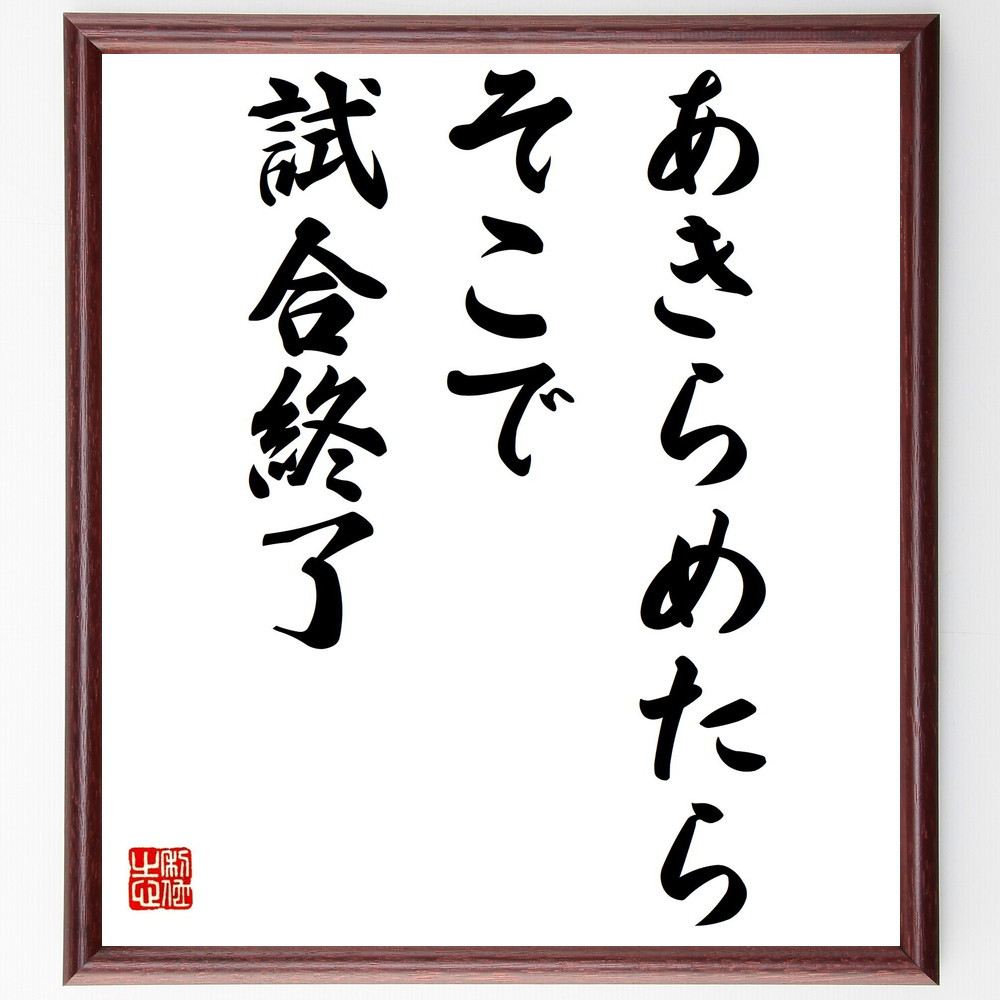 あきらめたら
そこで
試合終了